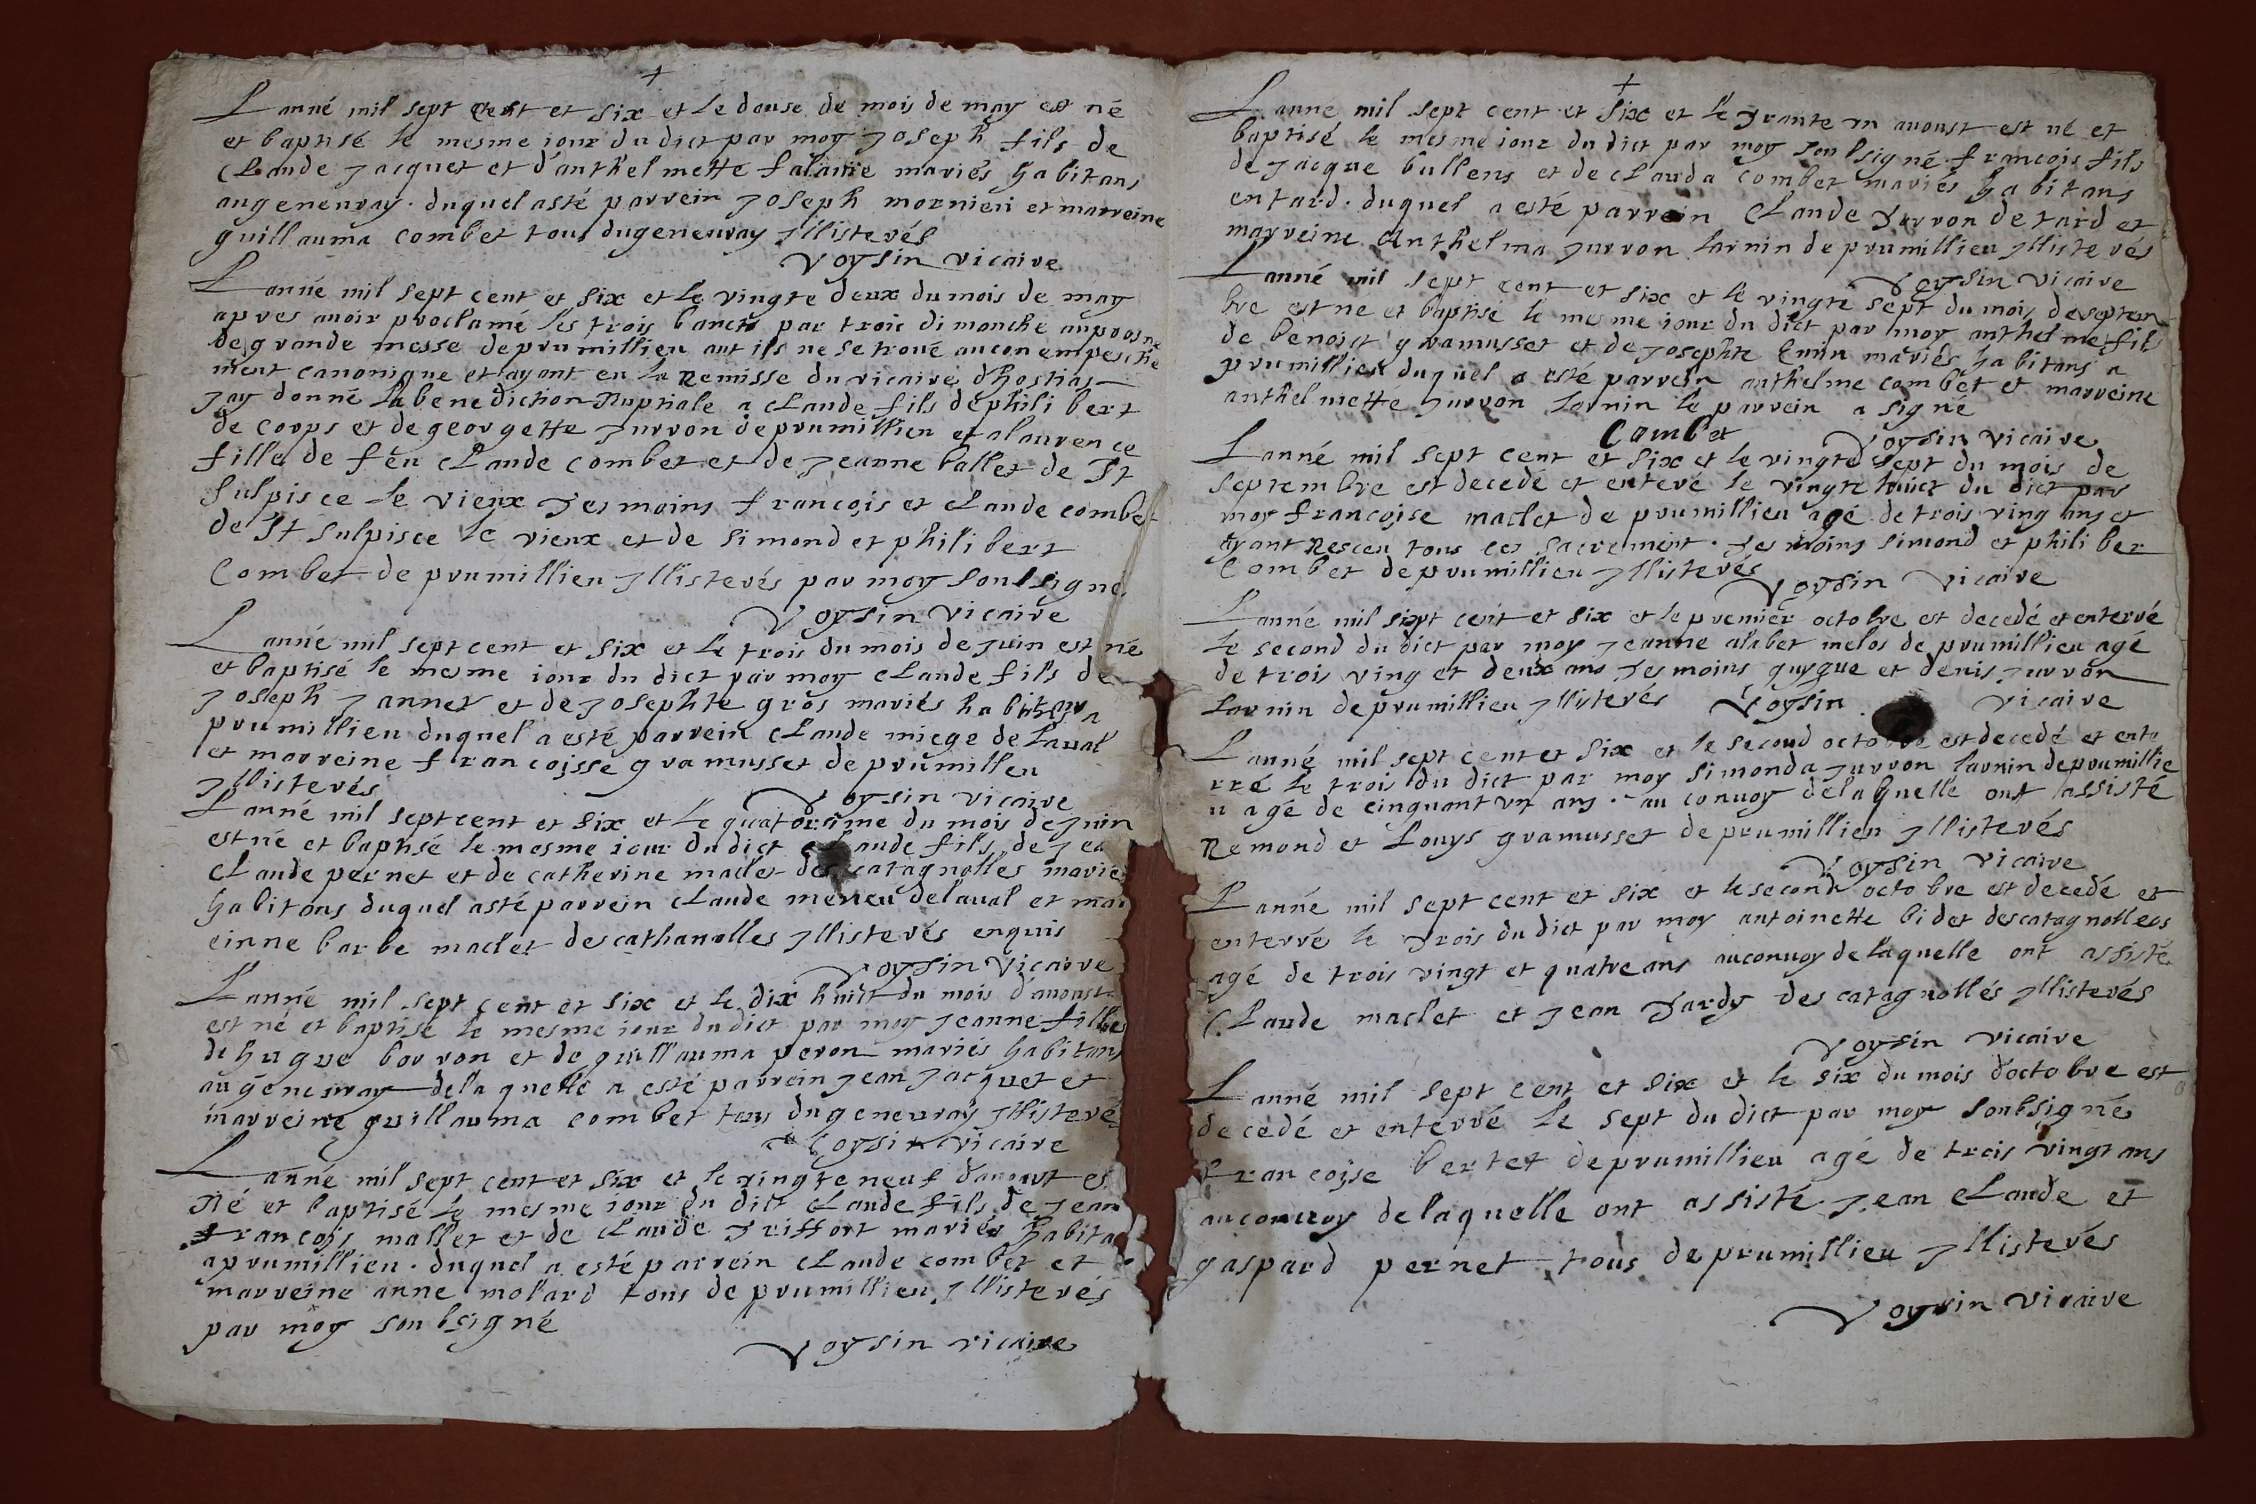 +
Lanné mil sept cent et six et le douse de mois de may est né
et baptisé le mesme iour du dict par moy Joseph fils de
Claude Jacquet et d'anthelmette falaitie mariés habitans
augeneuray. duquel asté parrein Joseph mornieu et marreine
guillauma combet tous dugeneuray Illisterés
Voysin vicaire
Lanné mil sept cent et six et le vingte deux du mois de may
apres auoir proclamé les trois banctz par trois dimanche auprosne
de grande messe deprumillieu aut ils ne se troué aucon empesche
ment canonique et ayant eu la Remisse du vicaire dhostias
Jay donné la benediction Nuptiale a Claude fils de philibert
de corps et de georgette Jurron deprumillieu et alaurence
fille de feu Claude combet et de Jeanne ballet de St
Sulpisce le vieux Tesmoins francois et Claude combet
de St Sulpisce le vieux et de simond et philibert
Combet de prumillieu Illisterés par moy soubsigné
Voysin vicaire
Lanné mil sept cent et six et le trois du mois de Juin est né
et baptisé le mesme iour du dict par moy Claude fils de
Joseph Jannet et de Josephte gros mariés habitans a
prumillieu duquel a esté parrein Claude miege de laual
et marreine francoisse gramusset de prumilleu
Illisterés
Voysin vicaire
Lanné mil sept cent et six et le quatorsime du mois de Juin
est né et baptisé le mesme iour du dict Claude fils de Jea
Claude pernet et de catherine maclet des catagnolles marié
habitans duquel asté parrein Claude meneu delaual et mar
einne barbe maclet descathanolles Illisterés enquis
Voysin vicaire
Lanné mil sept cent et six et le dix huict du mois d'auoust
est né et baptisé le mesme iour du dict par moy Jeanne fille
de hugue borron et de guillauma peron mariés habitans
augeneuray dela quelle a esté parrein Jean Jacquet et
marreine guillauma combet tous dugeneuray Illisteré
Voysin vicaire
Lanné mil sept cent et six et le vingte neuf dauout es
Né et baptisé le mesme iour du dict Claude fils de Jean
francois mallet et de Claude Triffort mariés habita
aprumillieu. duquel a esté parrein Claude combet et
marreine anne molard tous de prumillieu Illisterés
par moy soubsigné
Voysin vicaire
+
Lanné mil sept cent et six et le Trante un auoust est né et
baptisé le mesme iour du dict par moy soubsigné. francois fils
de Jacque bullens et de Clauda combet mariés habitans
entard. duquel a esté parrein Claude Jurron de tard et
marreine Anthelma Jurron larnin de prumillieu Illisterés
Voysin vicaire
Lanné mil sept cent et six et le vingte sept du mois de septem
bre est ne et baptisé le mesme iour du dict par moy anthelme fils
de benoict gramusset et de Josephte mariés habitans a
prumillieu duquel a esté parrein anthelme combet et marreine
anthelmette Jurron larnin le parrein a signé
Combet Voysin vicaire
Lanné mil sept cent et six et le vingte sept du mois de
septembre est decedé et enteré le vingte huict du dict par
moy francoise maclet de prumillieu agé de trois ving ans et
ayant Resceu tous ces sacrement. Tesmoins simond et philiber
Combet de prumillieu Illisterés
Voysin vicaire
Lanné mil sept cent et six et le premier octobre est decedé et enterré
le second du dict par moy Jeanne alabet melos de prumillieu agé
de trois ving et deux ans Tesmoins guygue et denis Jurron
larnin de prumillieu Illisterés Voysin vicaire
Lanné mil sept cent et six et le second octobre est decedé et ente
rré le trois du dict par moy simonda Jurron larnin deprumillie
u agé de cinquant un ans. au conuoy delaquelle ont assisté
Remond et Louys gramusset de prumillieu Illisterés
Voysin vicaire
Lanné mil sept cent et six et le second octobre est decedé et
enterré le Trois du dict par moy antoinette bidet descatagnolleos
agé de trois vingt et quatre ans auconuoy de laquelle ont assisté
Claude maclet et Jean Tardy des catagnollés Illisterés
Voysin vicaire
Lanné mil sept cent et six et le six du mois d'octobre est
decedé et enterré le sept du dict par moy soubsigné
francoise bertet deprumillieu agé de trois vingt ans
auconuoy delaquelle ont assisté Jean Claude et
gaspard pernet tous deprumillieu Illisterés
Voysin vicaire